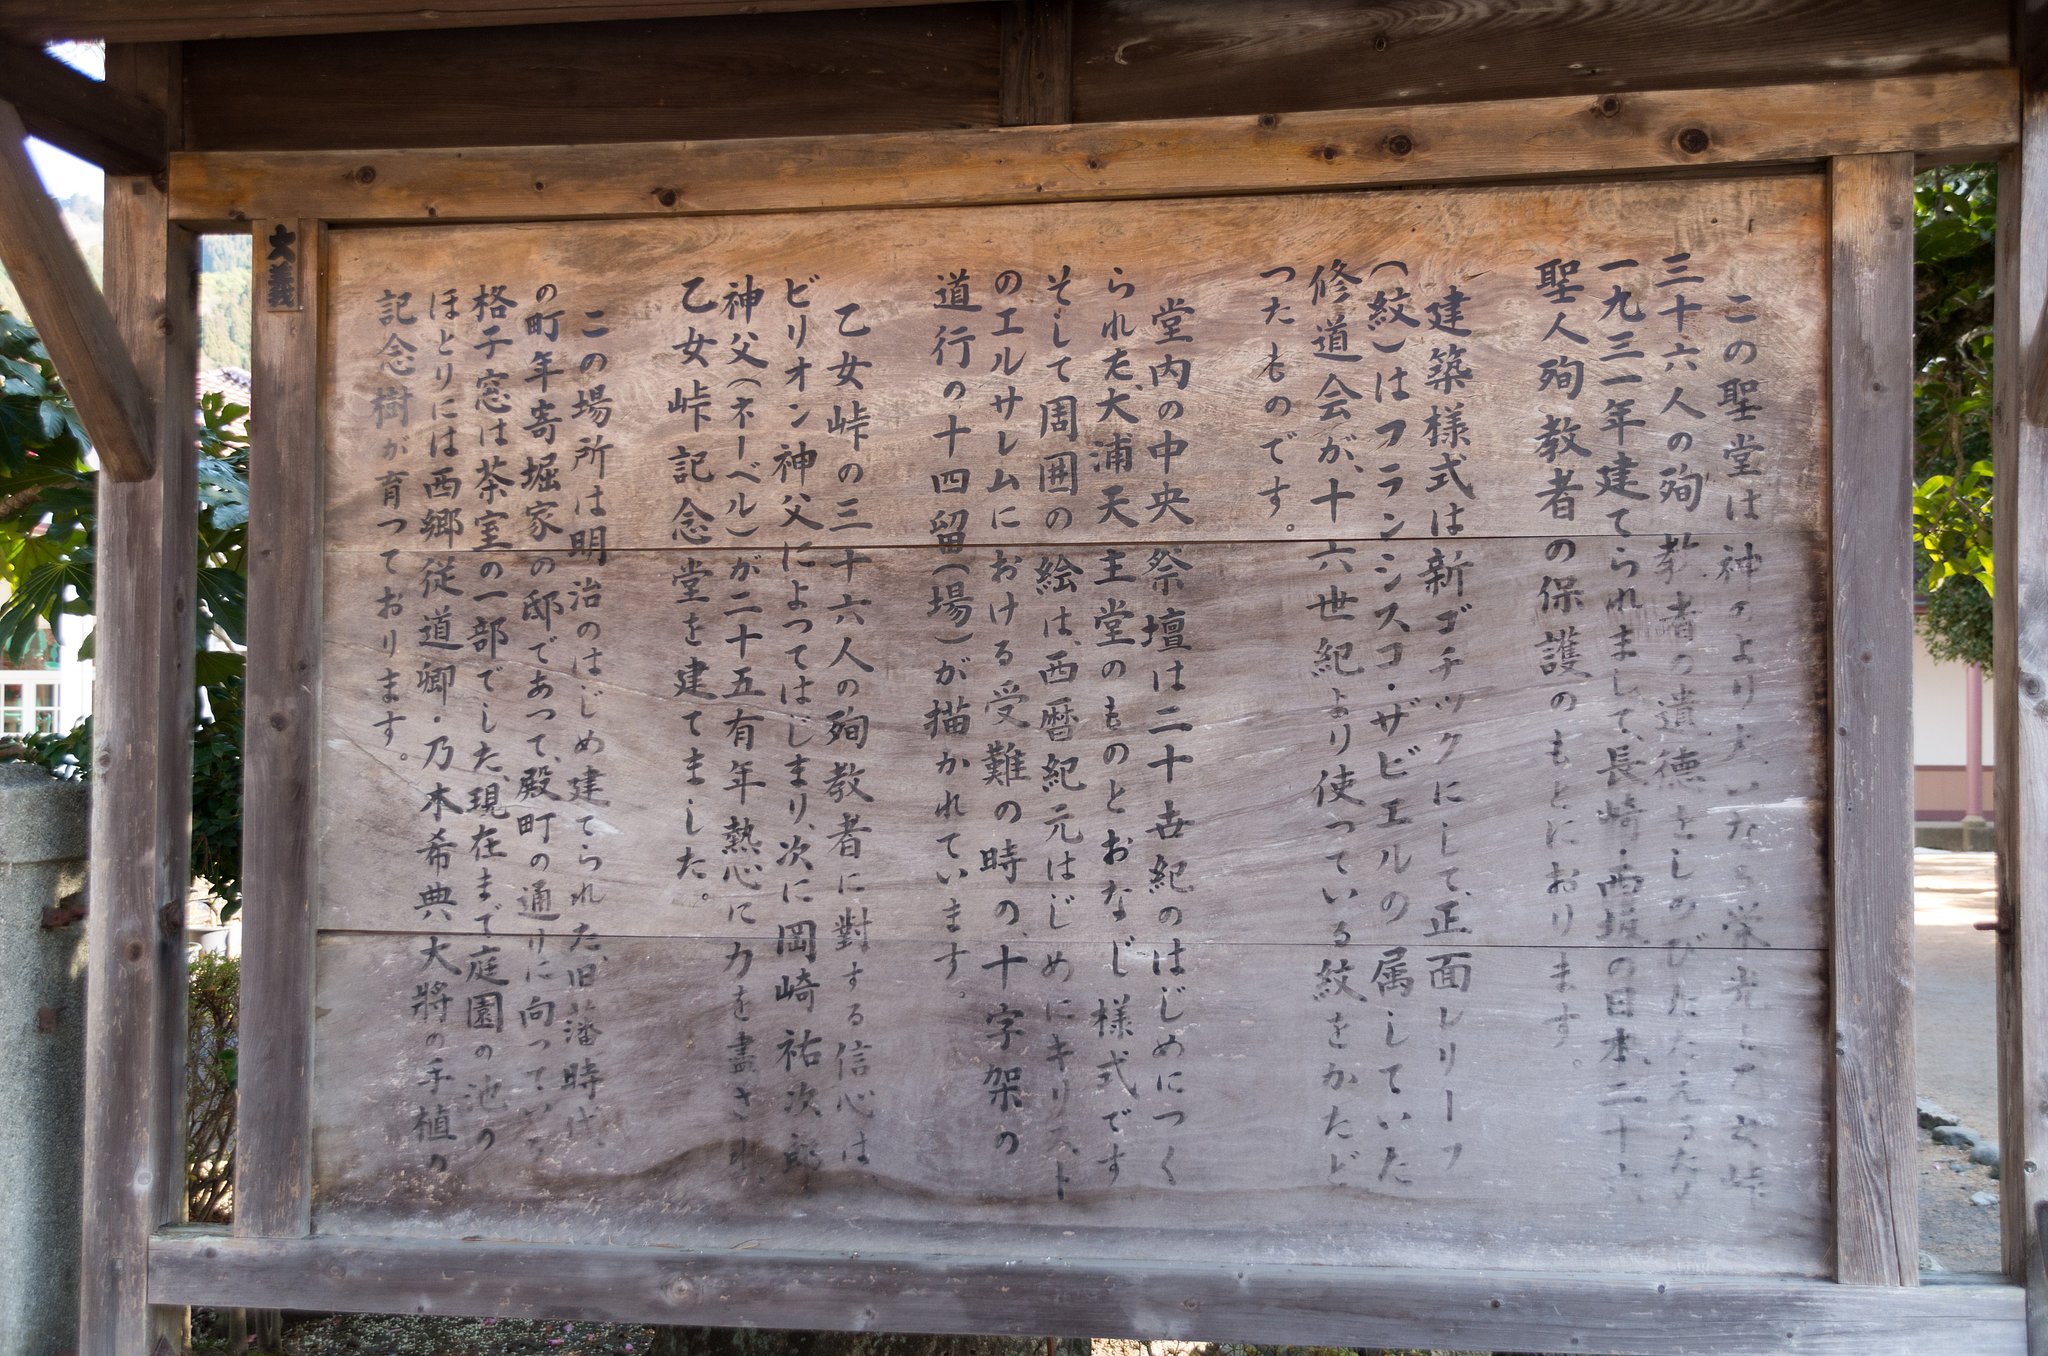 この聖堂は神のより大いなる栄光と乙女峠
三十六人の殉教者の遺徳をしのびたたえるため
一九三一年建てられまして、長崎・西坂の日本二十六
聖人殉教者の保護のもとにおります。
建築様式は新ゴチックにして、正面レリーフ
(紋)はフランシスコ・ザビエルの属していた
修道会が、十六世紀より使っている紋をかたど
ったものです。
堂内の中央祭壇は二十世紀のはじめにつく
られた、大浦天主堂のものとおなじ様式です
そして周囲の絵は、西暦紀元はじめにキリスト
のエルサレムにおける受難の時の、十字架の
道行の十四留(場)が描かれています。
乙女峠の三十六人の殉教者に對する信心は、
ビリオン神父によってはじまり、次に岡崎祐次郎
神父(ネーベル)が二十五有年熱心に力を盡され、
乙女峠記念堂を建てました。
この場所は明治のはじめ建てられた、旧藩時代、
の町年寄堀家の邸であって、殿町の通りに向っている
格子窓は茶室の一部でした、現在まで庭園の池の
ほとりには西郷従道卿・乃木希典大將の手植の
記念樹が育っております。
大義